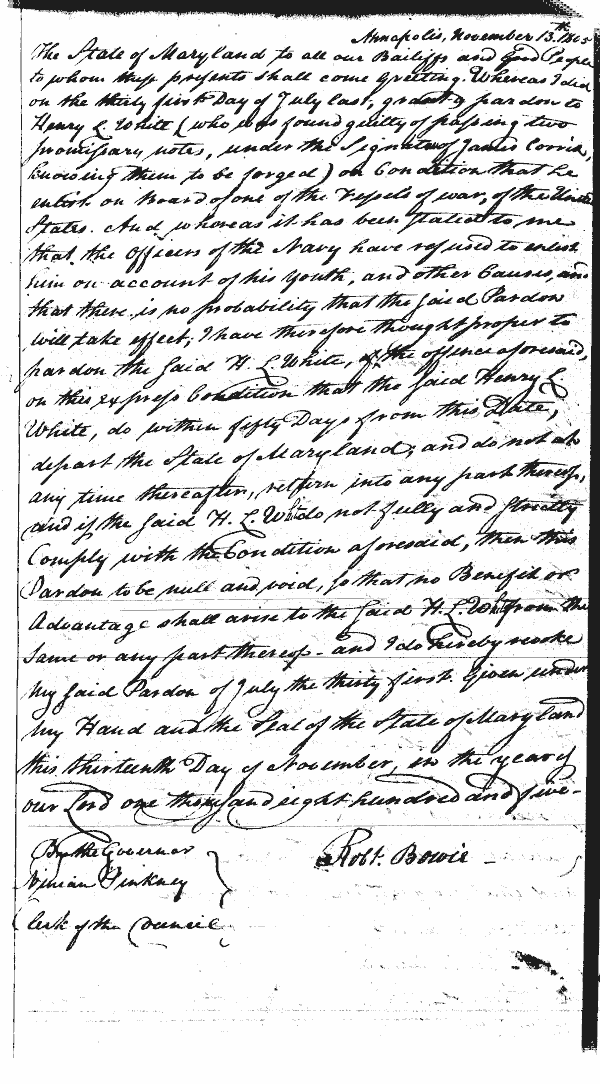 Annapolis, November 13.th 1805
The State of Maryland to all our Bailiffs and good People
to whom these presents shall come greeting. Whereas I did
on the thirty first Day of July last, grant a pardon to
Henry L. White (who was found guilty of passing two
promissary notes, under the Signature of James Corrie,
knowing them to be forged) on Condition that he
enlist on Board of one of the Vessels of war, of the United
States. And whereas it has been stated to me
that the officers of the Navy have refused to enlist
him on account of his Youth, and other Causes, and
that there is no probability that the said Pardon
will take effect, I have therefore thought proper to
pardon the said H. L. White, of the offence aforesaid,
on this express Condition that the said Henry L.
White, do within fifty Days from this Date,
depart the State of Maryland, and do not at
any time thereafter, return into any part thereof,
and if the said H. L. White do not fully and strictly
Comply with the Condition aforesaid, then this
Pardon to be null and void, so that no Benefit or
Advantage shall arise to the said H. L. White from the
same or any part thereof - and I do hereby revoke
my said Pardon of July the thirty first. Given under
my Hand and the Seal of the State of Maryland
this thirteenth Day of November, in the year of
our Lord one thousand eight hundred and five -
By the Governor
Robt. Bowie -
Ninian Pinkney
Clerk of the Council